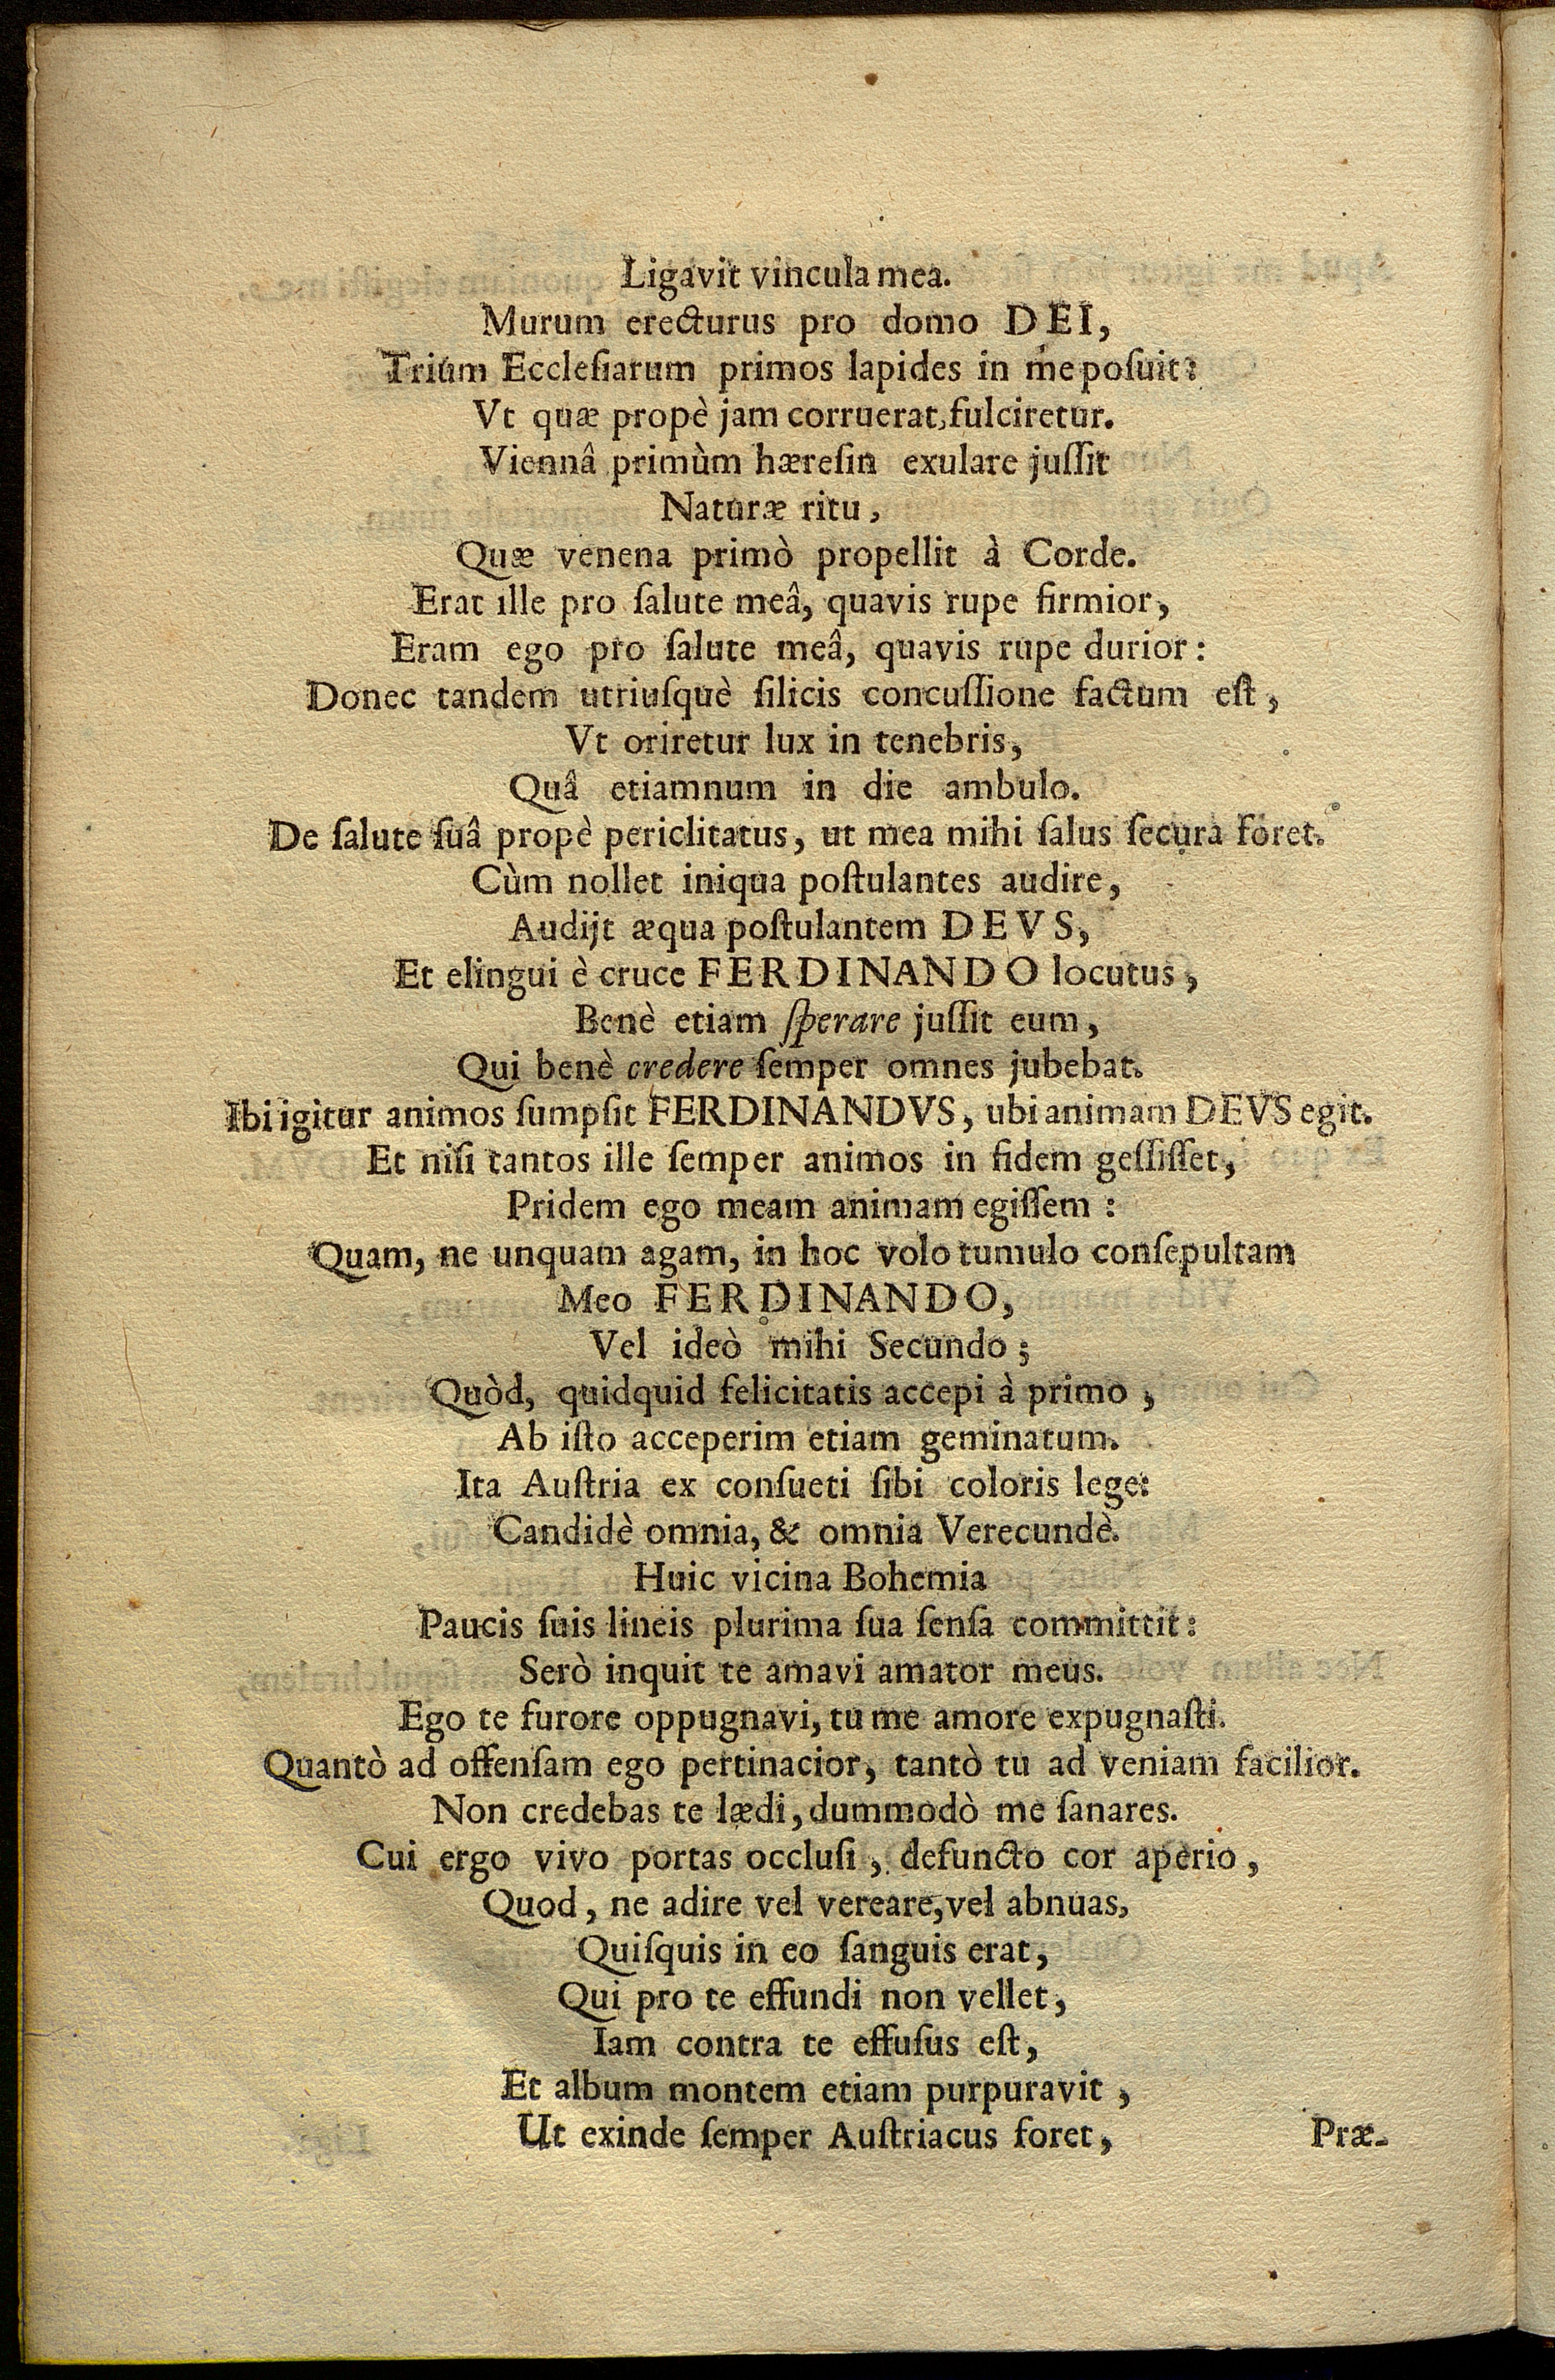 Ligavit vincula mea.
Murum erecturus pro domo DEI,
Trium Eccleſiarum primos lapides in me poſuit:
Vt quæ propè jam corruerat, fulciretur.
Viennâ primùm hæreſin exulare juſſit
Naturæ ritu,
Quæ venena primò propellit à Corde.
Erat ille pro ſalute meâ, quavis rupe firmior,
Eram ego pro ſalute meâ, quavis rupe durior:
Donec tandem utriuſquè ſilicis concuſſione factum eſt,
Vt oriretur lux in tenebris,
Quâ etiamnum in die ambulo.
De ſalute ſuâ propè periclitatus, ut mea mihi ſalus ſecura foret.
Cùm nollet iniqua poſtulantes audire,
Audijt æqua poſtulantem DEVS,
Et elingui è cruce FERDINANDO locutus,
Benè etiam ſperare juſſit eum,
Qui benè credere ſemper omnes jubebat.
Ibi igitur animos ſumpſit FERDINANDVS, ubi animam DEVS egit.
Et niſi tantos ille ſemper animos in fidem geſſiſſet,
Pridem ego meam animam egiſſem:
Quam, ne unquam agam, in hoc volo tumulo conſepultam
Meo FERDINANDO,
Vel ideò mihi Secundo;
Quòd, quidquid felicitatis accepi à primo,
Ab iſto acceperim etiam geminatum.
Ita Auſtria ex conſueti ſibi coloris lege:
Candidè omnia, & omnia Verecundè.
Huic vicina Bohemia
Paucis ſuis lineis plurima ſua ſenſa committit:
Serò inquit te amavi amator meus.
Ego te furore oppugnavi, tu me amore expugnaſti.
Quantò ad offenſam ego pertinacior, tantò tu ad veniam facilior.
Non credebas te lædi, dummodò me ſanares.
Cui ergo vivo portas occluſi, defuncto cor aperio,
Quod, ne adire vel vereare, vel abnuas,
Quiſquis in eo ſanguis erat,
Qui pro te effundi non vellet,
Iam contra te effuſus eſt,
Et album montem etiam purpuravit,
Ut exinde ſemper Auſtriacus foret,
Præ-